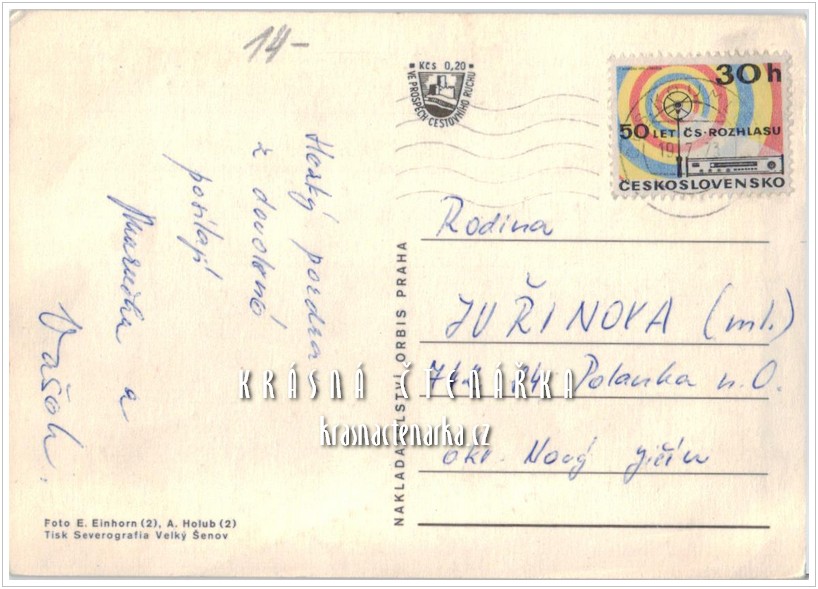 14-
Kčs 0,20
VE PROSPĚCH CESTOVNÍHO RUCHU
30h
50 LET ČS·ROZHLASU
ČESKOSLOVENSKO
Hezký pozdrav
z dovolené
posílají
Maruška a
Vašek.
NAKLADATELSTVÍ ORBIS PRAHA
Rodina
JUŘINOVA (ml.)
742 84 Polanka n.O.
okr. Nový Jičín
KRÁSNÁ ČTENÁŘKA
krasnactenarka.cz
Foto E. Einhorn (2), A. Holub (2)
Tisk Severografia Velký Šenov